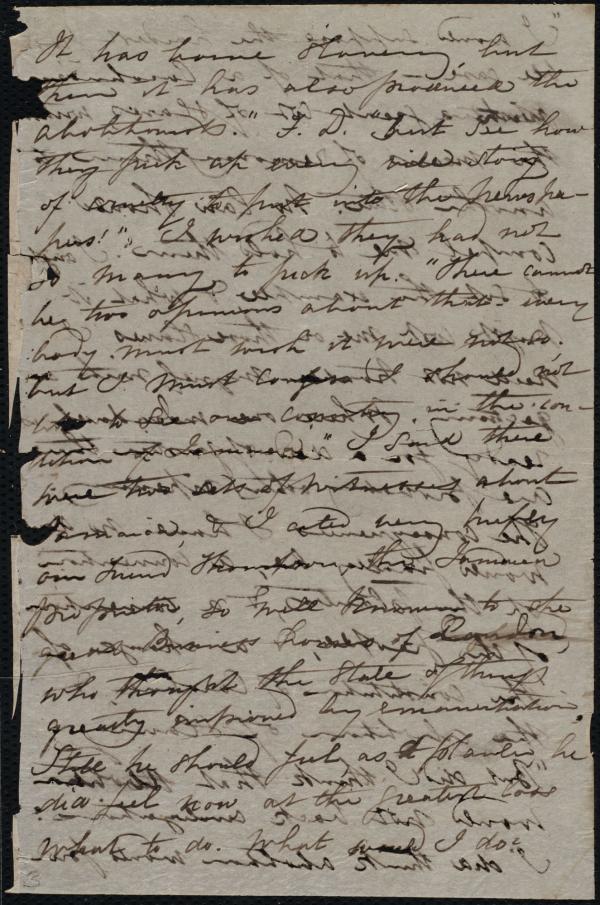 It has borne Slavery, but
then it has also produced the
abolitionists." F. D. "But see how
they pick up every vile story
of cruelty to put into the newspa-
pers!" I wished they had not
so many to pick up. "There cannot
be two opinions about that - every
body must wish it were not so.
but I must confess I should not
to see our country in the con-
dition of Jamaica." I said there
were two sets of witnesses about
Jamaica, & I cited very briefly
our friend Thompson, this Jamaica
proprietor, so well known to the
great Business houses of London,
who thought the state of things
greatly improved by emancipation.
Still he should feel as a planter he
did feel now at the greatest loss
what to do. What would I do?
3